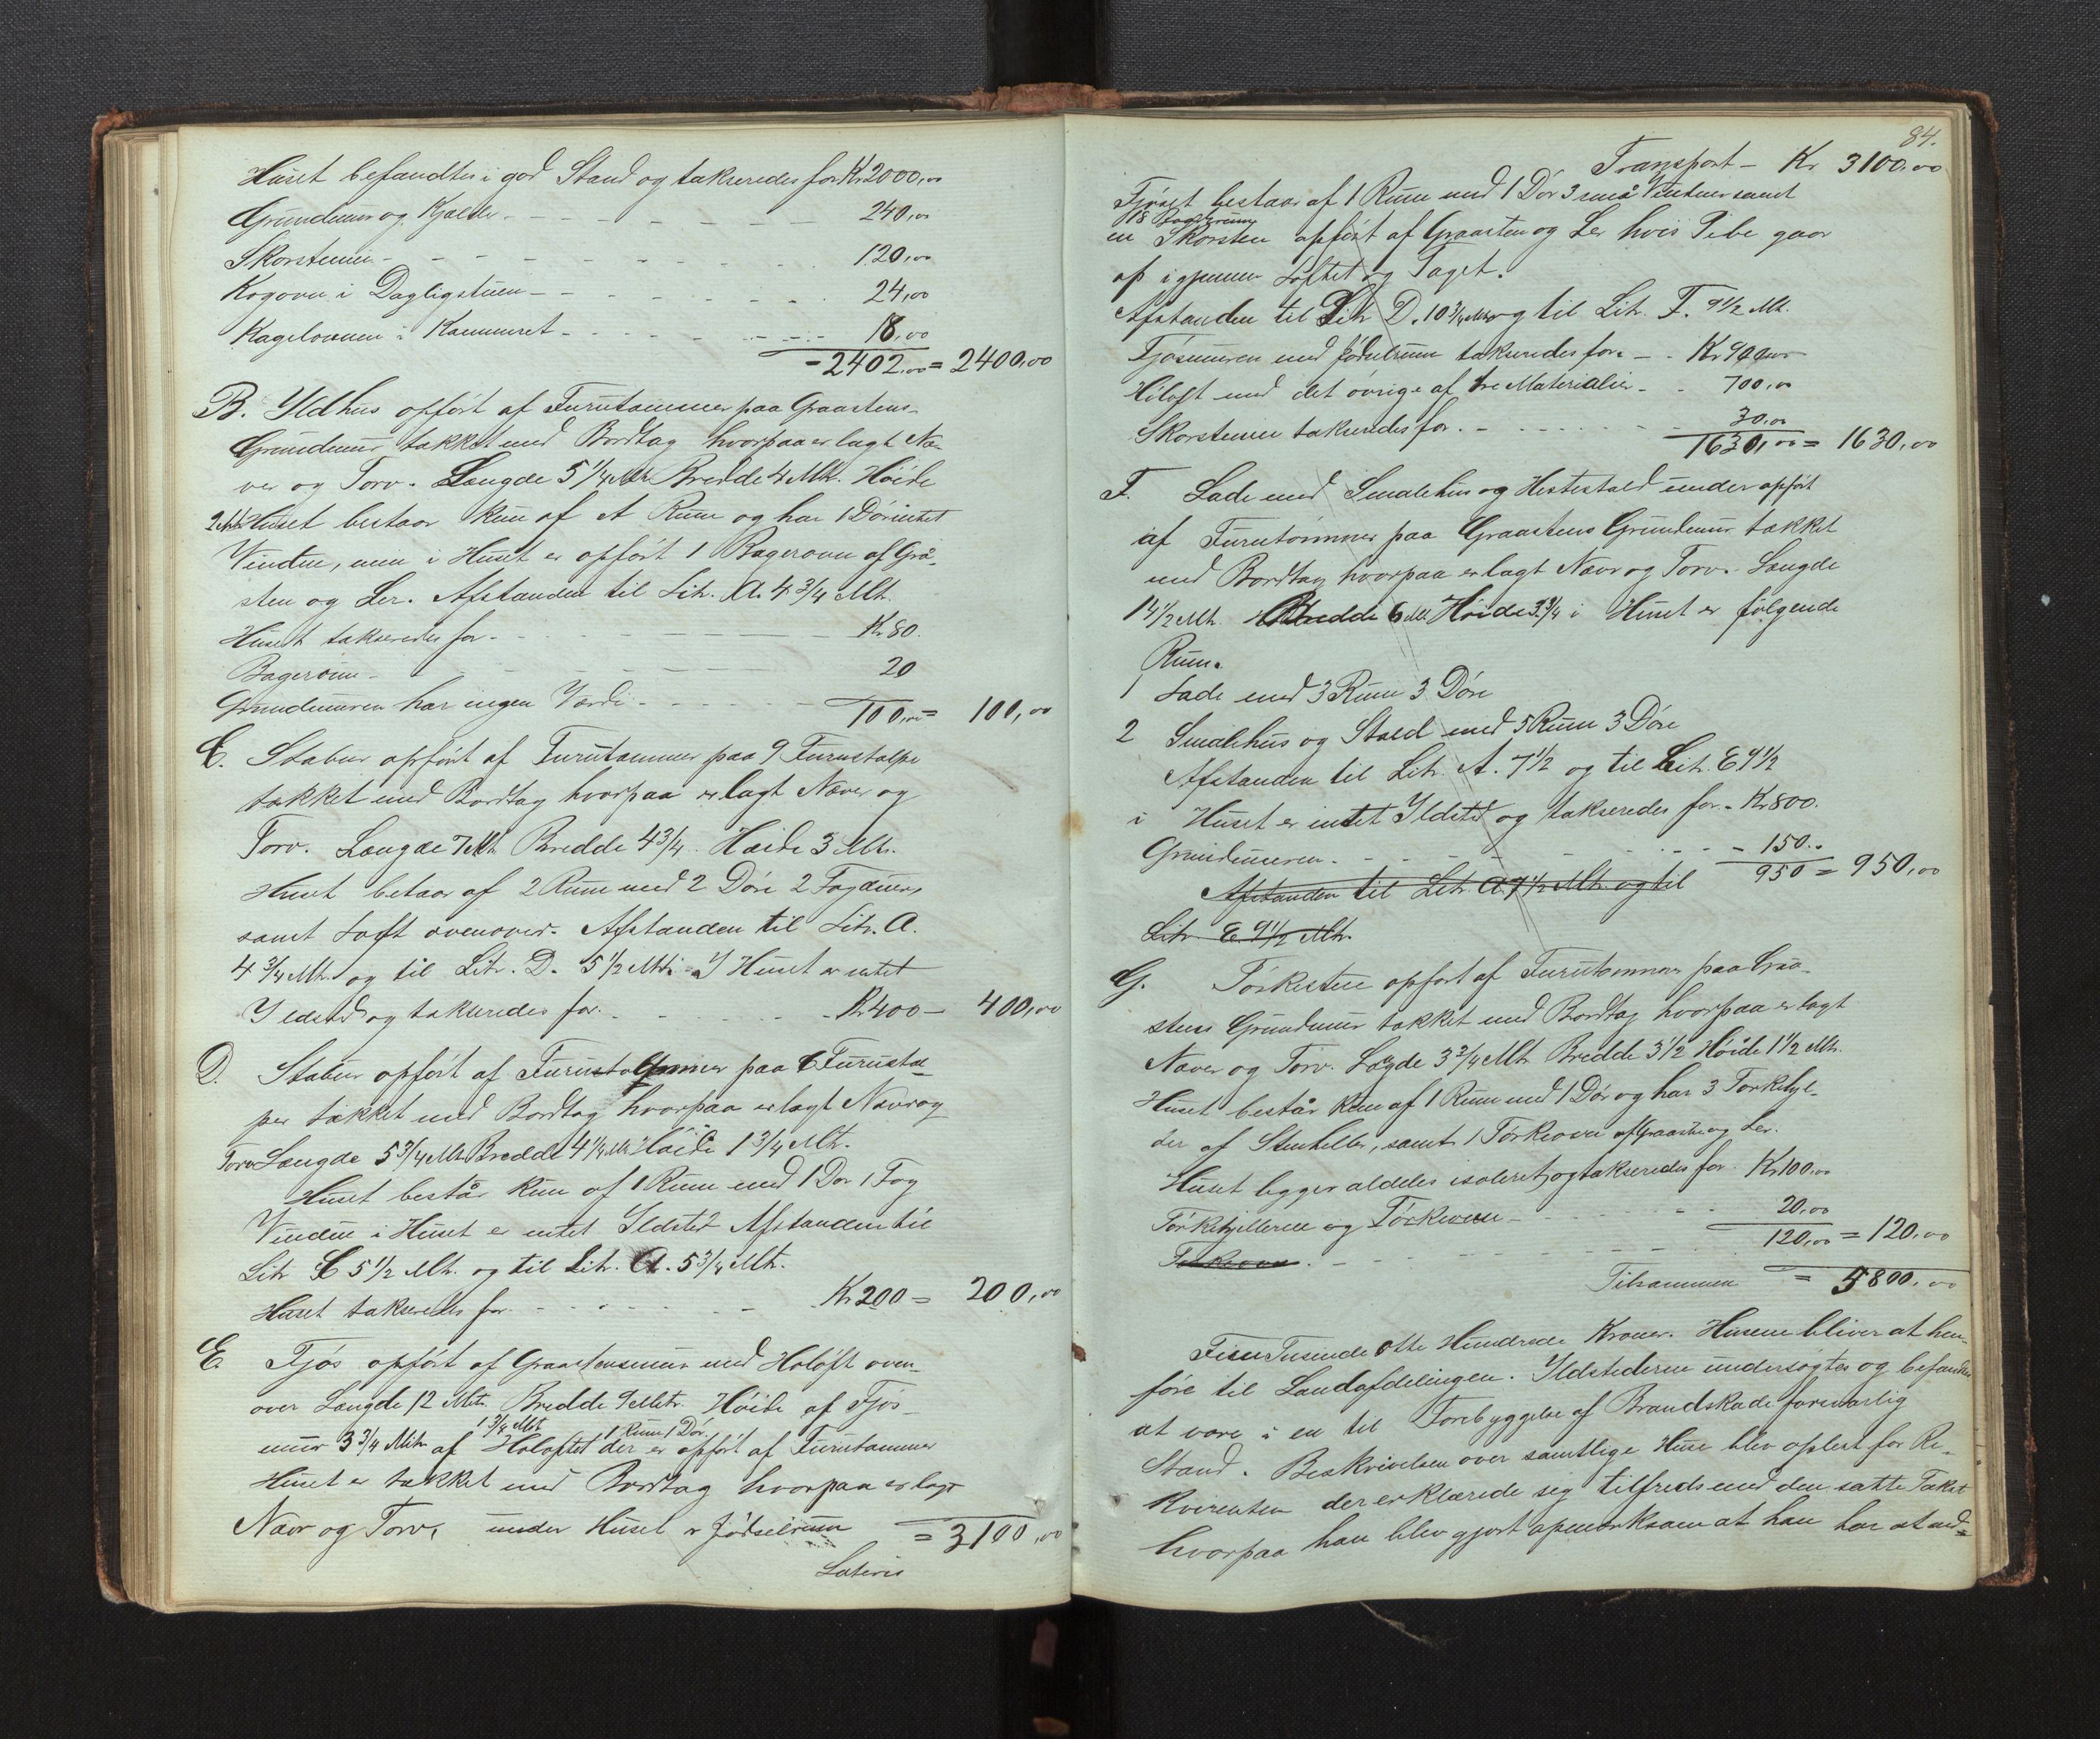 Huset befandtes i god Stand og takseredes for Kr 2000,00
Grundmur og Kjælder - 240,00
Skorstenen - 120,00
Kogovn i Dagligstuen - 24,00
Kagelovnen i Kammeret - 18,00
- 2402,00 = 2400,00
B. Ildhus opført af Furutømmer paa Graastens-
Grundmur tækket med Bordtag hvorpaa er lagt Næ-
ver og Torv. Længde 5 1/4 Mtr Bredde 4 Mtr. Höide
2 Mtr Huset bestaar kun af et Rum og har 1 Dör intet
Vindue, men i Huset er opført 1 Bagerovn af Grå-
sten og Ler. Afstanden til Litr. A. 4 3/4 Mtr.
Huset takseredes for - Kr 80.
Bagerovn - 20
Grundmuren har ingen Værdi - 100,00 = 100,00
C. Stabur opført af Furutømmer paa 9 Furustolpe
tækket med Bordtag hvorpaa er lagt Næver og
Torv. Længde 7 Mtr. Bredde 4 3/4. Høide 3 Mtr.
Huset betaar af 2 Rum med 2 Døre 2 Fag
samt Loft ovenover. Afstanden til Litr. A.
4 3/4 Mtr. og til Litr. D. 5 1/2 Mtr. I Huset er intet
Ildsted og takseredes for. Kr 400 - 400,00
D. Stabur opført af Furutømmer paa 6 Furustol-
per tækket med Bordtag hvorpaa er lagt Næver og
Torv Længde 5 3/4 Mtr Bredde 4 1/4 Mtr Höide 1 3/4 Mtr.
Huset består kun af 1 Rum med 1 Dør 1 Fag
Vindue i Huset er intet Ildsted Afstanden til
Litr C 5 1/2 Mtr. og til Litr. A. 5 3/4 Mtr.
Huset takseredes for - Kr 200 = 200,00
E Fjös opført af Graastensmur med Höloft oven-
over Længde 12 Mtr. Bredde 9 Mtr. Höide af Fjös-
1 3/4 Mtr. 1 Rum 1 Dör.
mur 3 3/4 Mtr af Höloftet der er opført af Furutømmer
Huset er tækket med Bordtag hvorpaa er lagt
Næver og Torv, under Huset er Jødselrum = 3100,00
Lateris
84.
Transport - Kr 3100,00
Fjöset bestaar af 1 Rum med 1 Dör 3 små Vinduer samt
en Skorsten opført af Graasten og Ler hvis Pibe gaar
op igjennem Loftet og Taget.
Afstanden til Litr D. 10 3/4 Mtr og til Litr. F. 9 1/2 Mt.
Fjösmuren med Jødselrum takseredes for. - Kr 900,00
Höloft med det øvrige af træ Materialier - 700,00
Skorstenen takseredes for. - 30,00
1630,00 = 1630,00
F. Lade med Smalehus og Hestestald under opført
af Furutömmer paa Graastens Grundmur tækket
med Bordtag hvorpaa er lagt Næver og Torv. Længde
14 1/2 Mtr. Bredde 6 Mtr Höide 3 3/4 i Huset er følgende
Rum.
1 Lade med 3 Rum 3 Døre
2 Smalehus og Stald med 5 Rum 3 Døre
Afstanden til Litr. A. 7 1/2 og til Litr. E 9 1/2
i Huset er intet Ildsted og takseredes for - Kr 800.
Grundmuren. - 150..
950 = 950,00
Afstanden til Litr. A 7 1/2 Mtr. og til
Litr. E. 9 1/2 Mtr.
G. Törkestue opført af Furutømmer paa Graa-
stens Grundmur tækket med Bordtag hvorpaa er lagt
Næver og Torv. Længde 3 3/4 Mtr Bredde 3 1/2 Höide 1 1/2 Mtr.
Huset består kun af 1 Rum med 1 Dör og har 3 Törkehyl-
der af Stenheller, samt 1 Törkeovn af Graasten og Ler.
Huset ligger aldeles isoleret og takseredes for. Kr 100,00
Törkehyllerne og Törkeovn - 20,00
120,00 = 120,00
Törkeovn. -
Tilsammen = 5800,00
Fem Tusende Otte Hundrede Kroner. Husene bliver at hen-
före til Landafdelingen. Ildstederne undersøgtes og befandtes
at være i en til Forebyggelse af Brandskade forsvarlig
Stand. Beskrivelsen over samtlige Huse blev oplest for Re-
kvirenten der erklærede sig tilfreds med den satte Takst
hvorpaa han blev gjort opmærksom at han har at und-